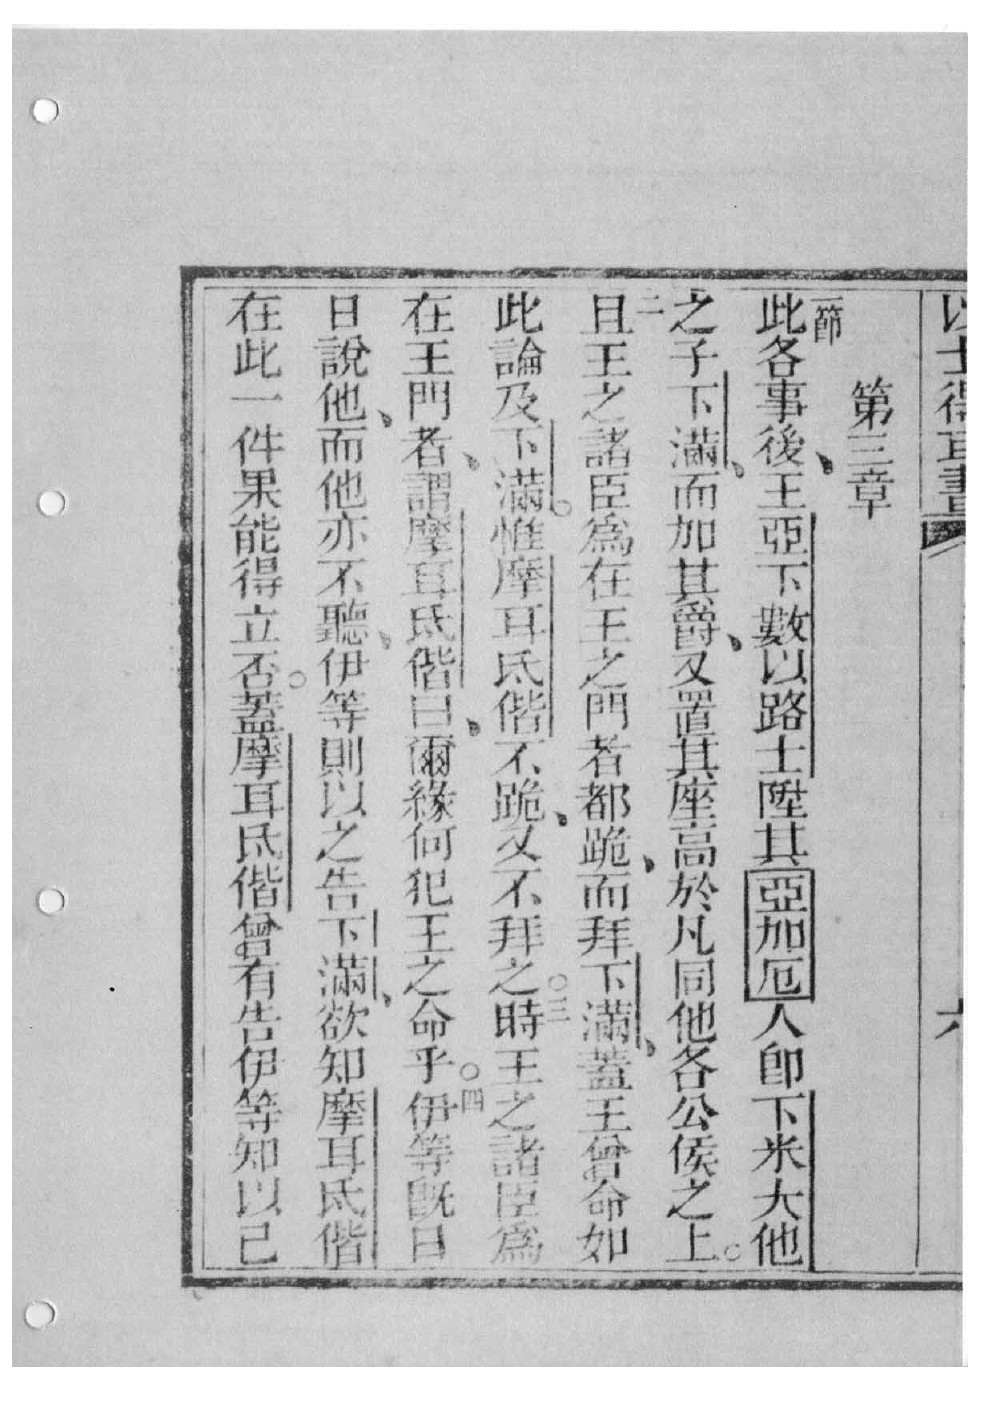 以士得耳書 六
第三章
一節此各事後、王亞下數以路士陞其亞加厄人卽下米大他
之子下滿、而加其爵、又置其座高於凡同他各公侯之上。
二且王之諸臣爲在王之門者都跪、而拜下滿、蓋王曾命如
此論及下滿。惟摩耳氐偕不跪、又不拜之。三時王之諸臣爲
在王門者、謂摩耳氐偕曰、爾緣何犯王之命乎。四伊等旣日
日說他、而他亦不聽、伊等則以之告下滿、欲知摩耳氐偕
在此一件果能得立否。蓋摩耳氐偕曾有告伊等知以己